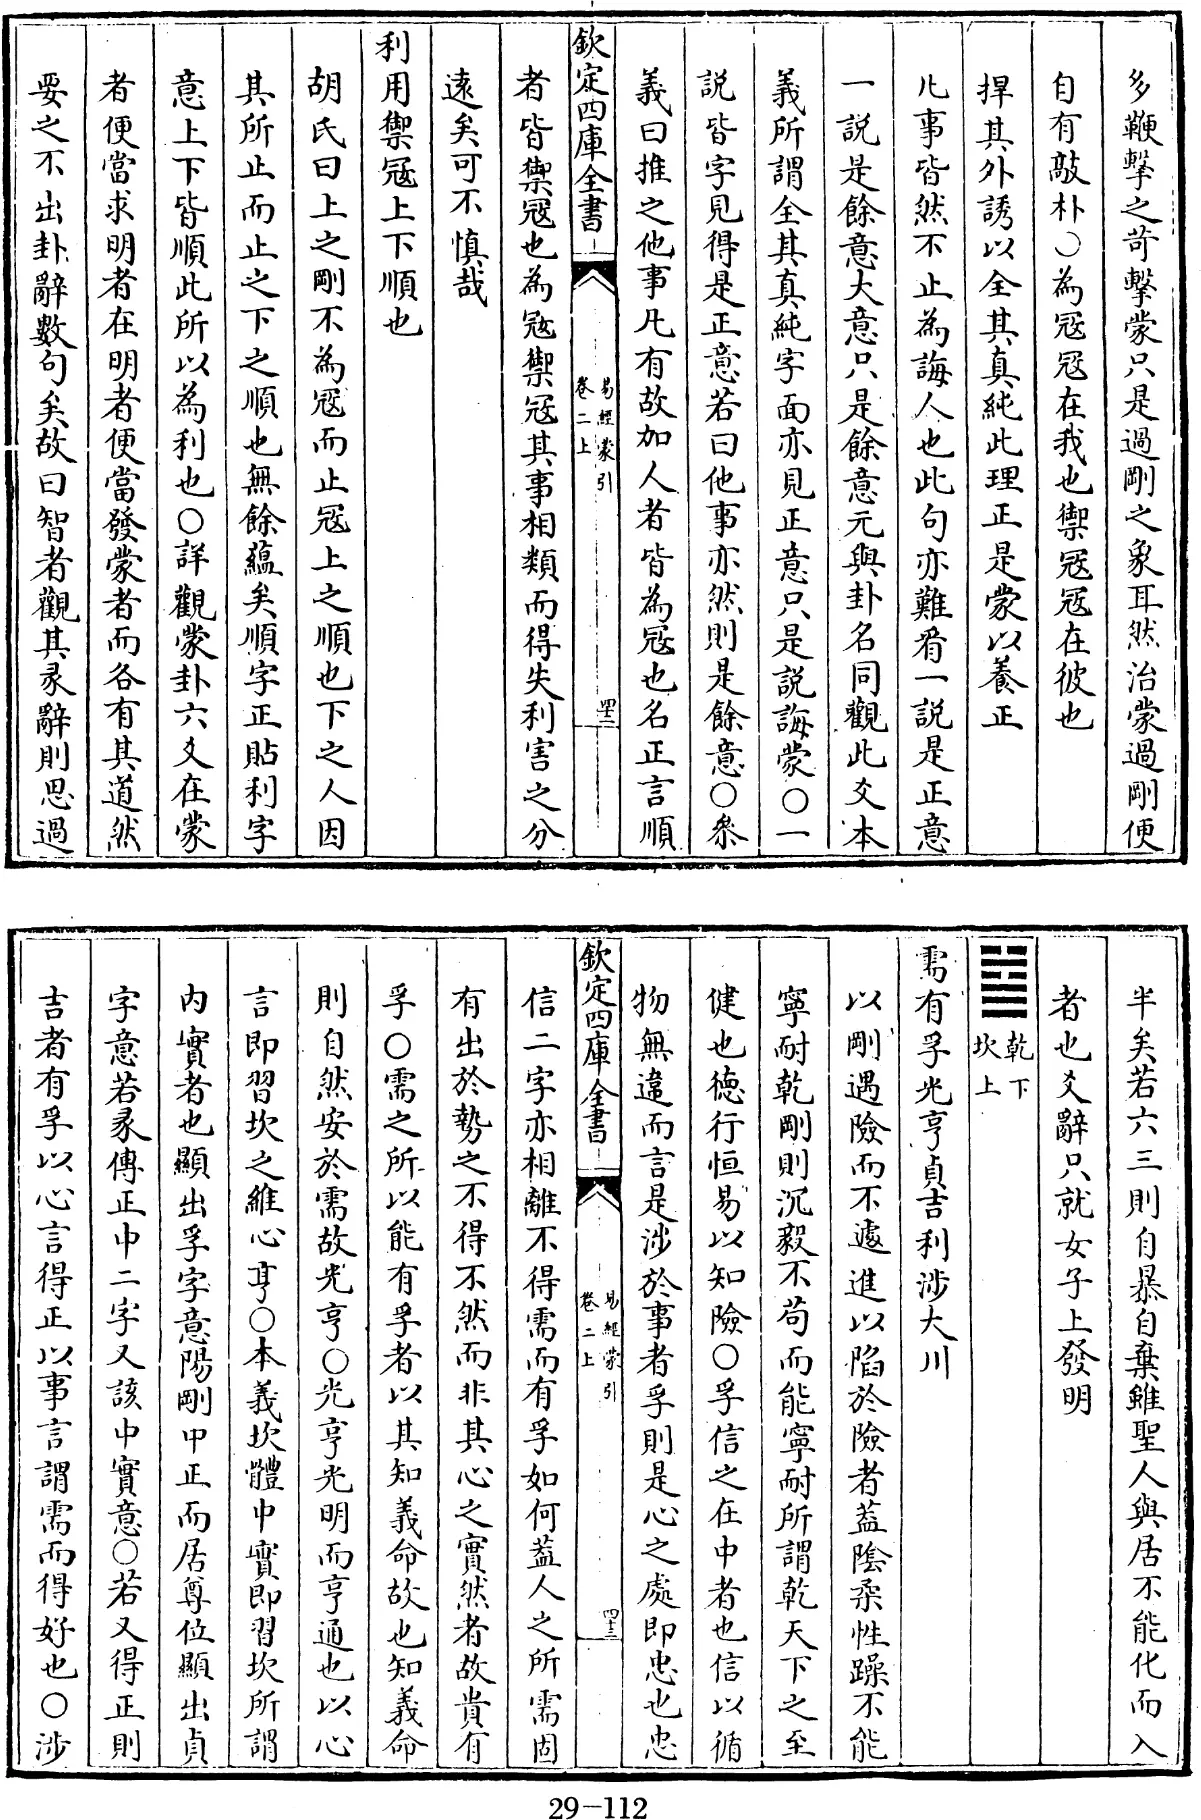 多鞭撃之苛撃蒙只是過剛之象耳然治蒙過剛便
自有敲朴○為冦冦在我也禦冦冦在彼也
捍其外誘以全其真純此理正是蒙以養正
凡事皆然不止為誨人也此句亦難㸔一説是正意
一説是餘意大意只是餘意元與卦名同觀此爻本
義所謂全其真純字面亦見正意只是説誨蒙○一
説皆字見得是正意若曰他事亦然則是餘意○叅
義曰推之他事凡有故加人者皆為冦也名正言順
欽定四庫全書
易經蒙引
卷二上
四二
者皆禦冦也為冦禦冦其事相類而得失利害之分
逺矣可不慎哉
利用禦冦上下順也
胡氏曰上之剛不為冦而止冦上之順也下之人因
其所止而止之下之順也無餘藴矣順字正貼利字
意上下皆順此所以為利也○詳觀蒙卦六爻在蒙
者便當求明者在明者便當發蒙者而各有其道然
要之不出卦辭數句矣故曰智者觀其彖辭則思過
半矣若六三則自暴自棄雖聖人與居不能化而入
者也爻辭只就女子上發明
䷄
乾下
坎上
需有孚光亨貞吉利涉大川
以剛遇險而不遽進以陷於險者葢隂柔性躁不能
寧耐乾剛則沉毅不茍而能寧耐所謂乾天下之至
健也徳行恒易以知險○孚信之在中者也信以循
物無違而言是涉於事者孚則是心之處即忠也忠
欽定四庫全書
易經蒙引
卷二上
四三
信二字亦相離不得需而有孚如何葢人之所需固
有出於勢之不得不然而非其心之實然者故貴有
孚○需之所以能有孚者以其知義命故也知義命
則自然安於需故光亨○光亨光明而亨通也以心
言即習坎之維心亨○本義坎體中實即習坎所謂
内實者也顯出孚字意陽剛中正而居尊位顯出貞
字意若彖傳正中二字又該中實意○若又得正則
吉者有孚以心言得正以事言謂需而得好也○涉
29-112